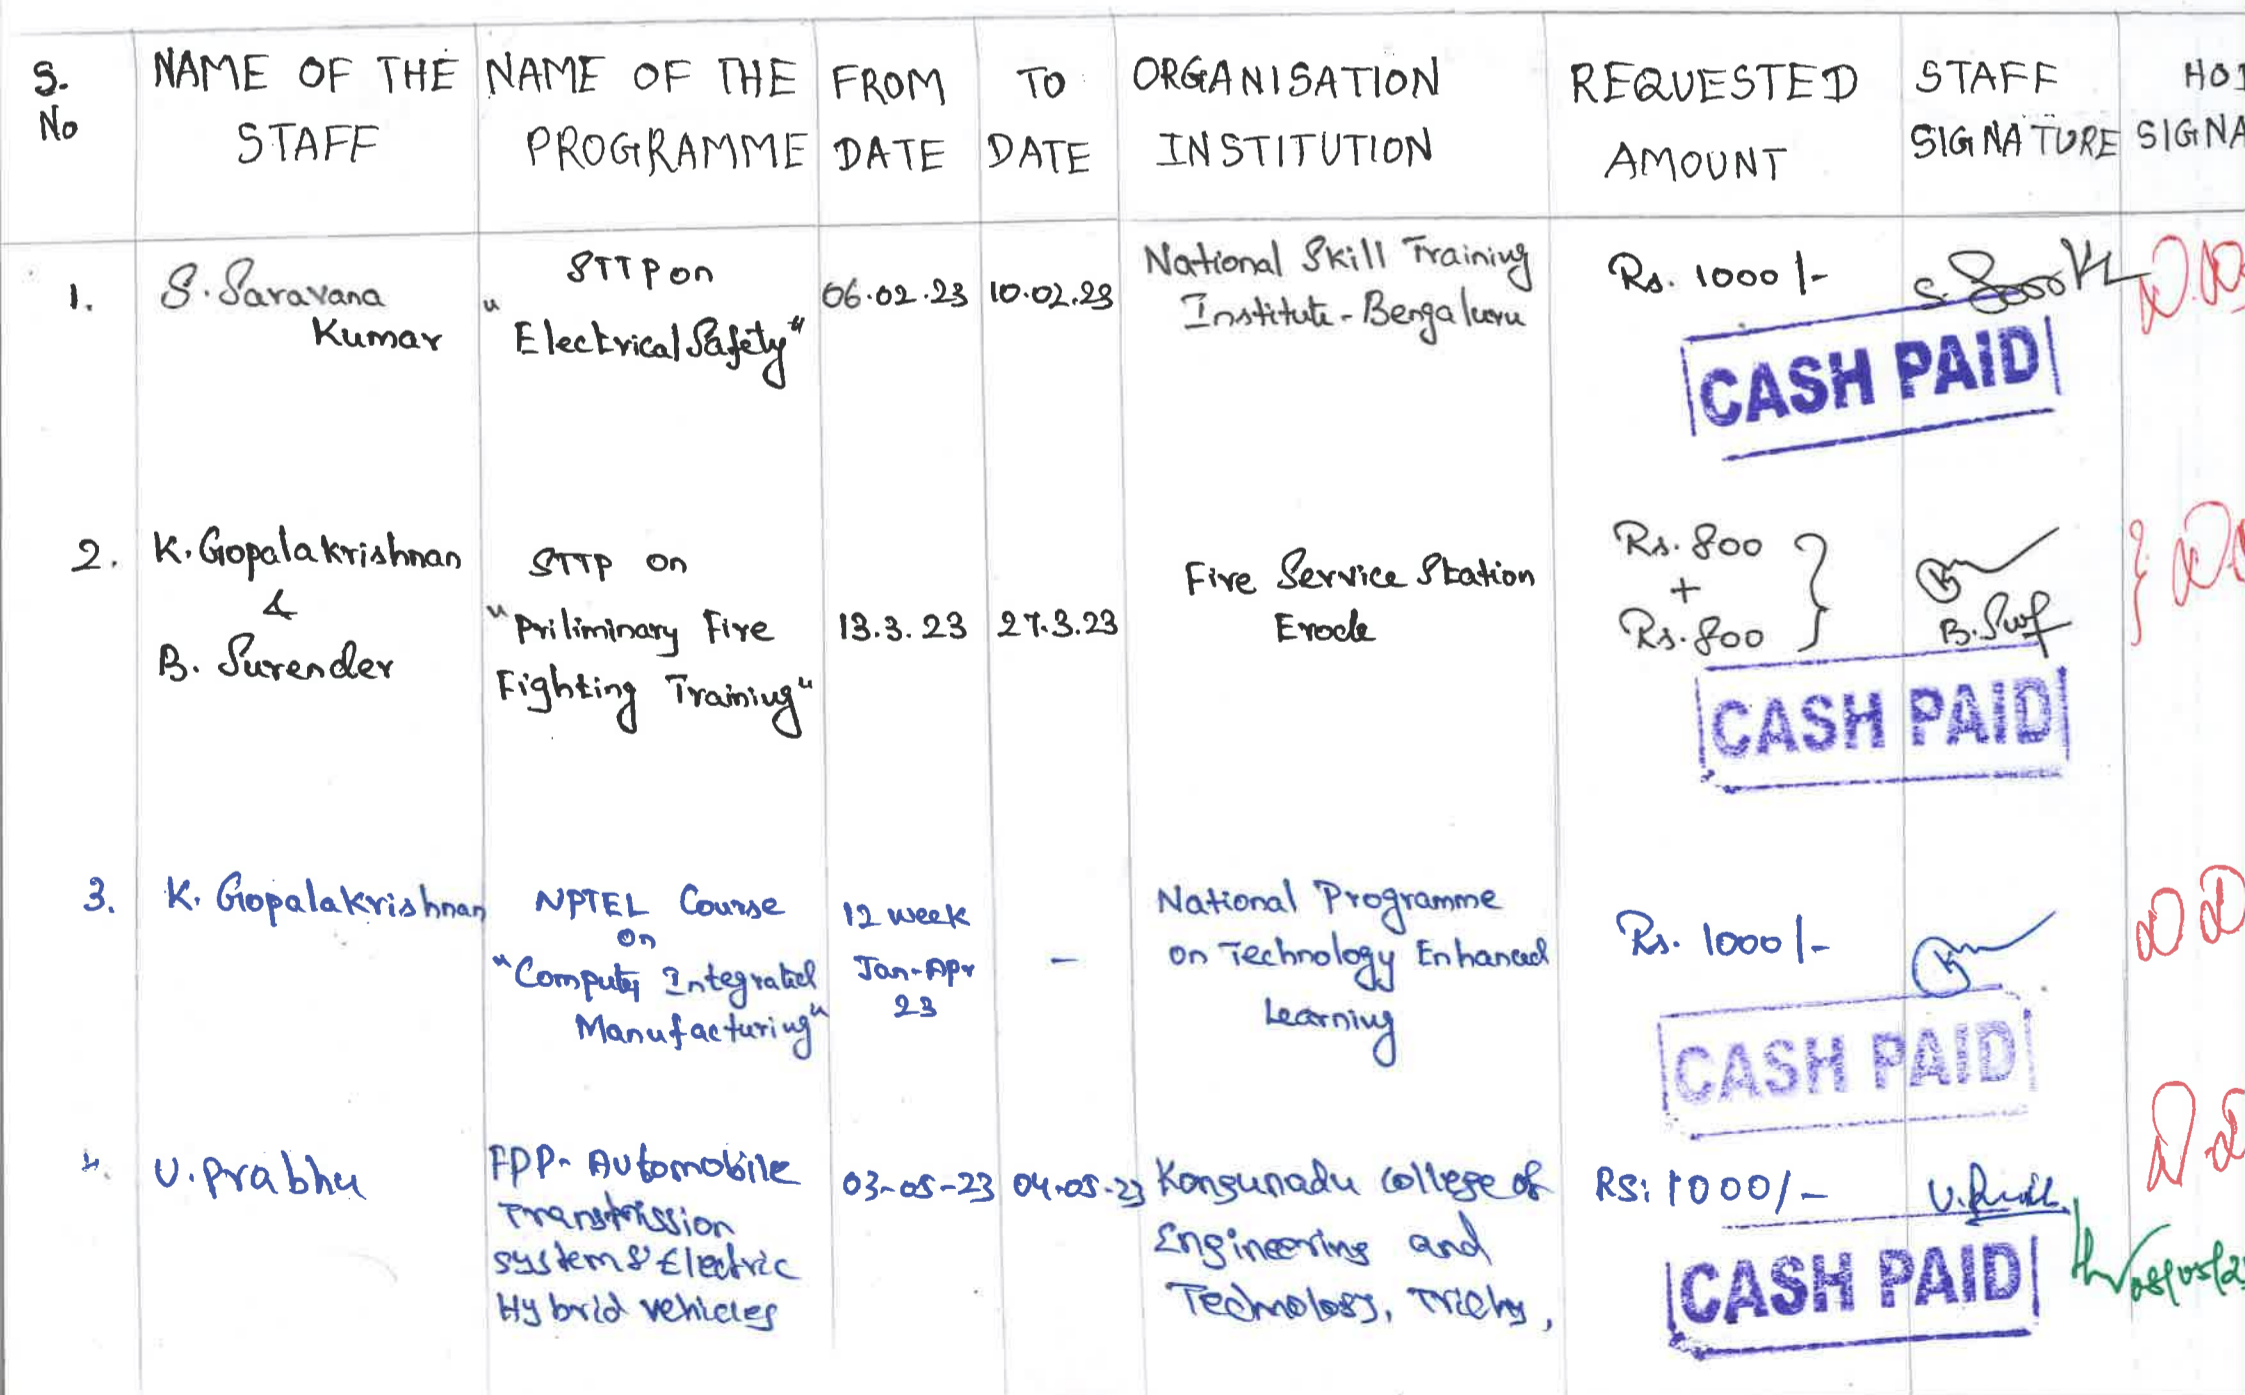 S. No
NAME OF THE STAFF
NAME OF THE PROGRAMME
FROM DATE
TO DATE
ORGANISATION INSTITUTION
REQUESTED AMOUNT
STAFF SIGNATURE
1.
S. Saravana
Kumar
STTP on
"Electrical Safety"
06.02.23
10.02.23
National Skill Training
Institute - Bengaluru
Rs. 1000/-
CASH PAID
2.
K. Gopalakrishnan
&
B. Surender
STTP on
"Priliminary Fire
Fighting Training"
13.3.23
27.3.23
Fire Service Station
Erode
Rs. 800
+
Rs. 800
CASH PAID
3.
K. Gopalakrishnan
NPTEL Course
on
"Computer Integrated
Manufacturing"
12 week
Jan-Apr
23
-
National Programme
on Technology Enhanced
Learning
Rs. 1000/-
CASH PAID
4.
U. Prabhu
FDP- Automobile
Transmission
system & Electric
Hybrid vehicles
03-05-23
04-05-23
Kongunadu College of
Engineering and
Technology, Trichy,
RS: 1000/-
CASH PAID